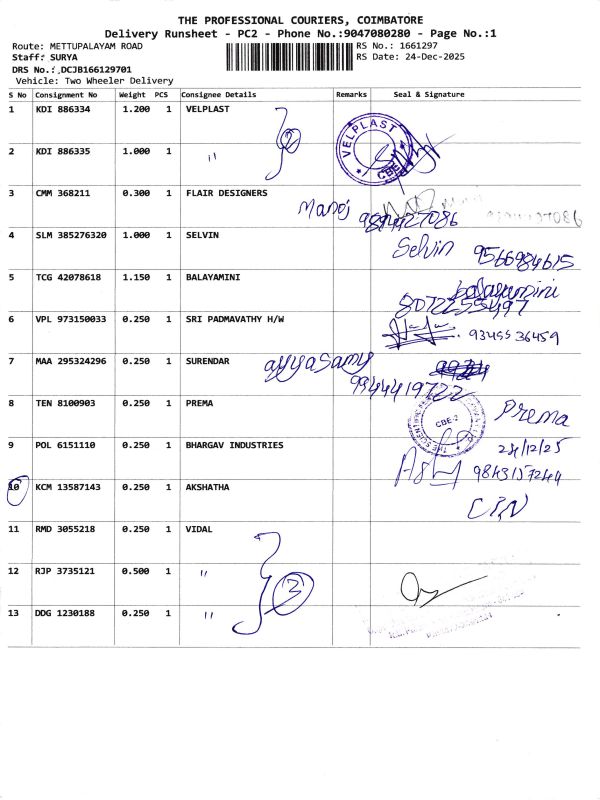 THE PROFESSIONAL COURIERS, COIMBATORE
Delivery Runsheet - PC2 - Phone No.:9047080280 - Page No.:1
Route: METTUPALAYAM ROAD
RS No.: 1661297
Staff: SURYA
RS Date: 24-Dec-2025
DRS No.: DCJB166129701
Vehicle: Two Wheeler Delivery
S No Consignment No Weight PCS Consignee Details Remarks Seal & Signature
1 KDI 886334 1.200 1 VELPLAST
2
VELPLAST
CBE
2 KDI 886335 1.000 1 "
3 CMM 368211 0.300 1 FLAIR DESIGNERS
Manoj 9894427086
4 SLM 385276320 1.000 1 SELVIN
Selvin 9566984615
5 TCG 42078618 1.150 1 BALAYAMINI
balayamini
8072255497
6 VPL 973150033 0.250 1 SRI PADMAVATHY H/W
93455 36459
7 MAA 295324296 0.250 1 SURENDAR
ayyasamy
9944419722
8 TEN 8100903 0.250 1 PREMA
CBE-2
Prema
24/12/25
9 POL 6151110 0.250 1 BHARGAV INDUSTRIES
9843157244
10 KCM 13587143 0.250 1 AKSHATHA
11 RMD 3055218 0.250 1 VIDAL
12 RJP 3735121 0.500 1 "
3
13 DDG 1230188 0.250 1 "